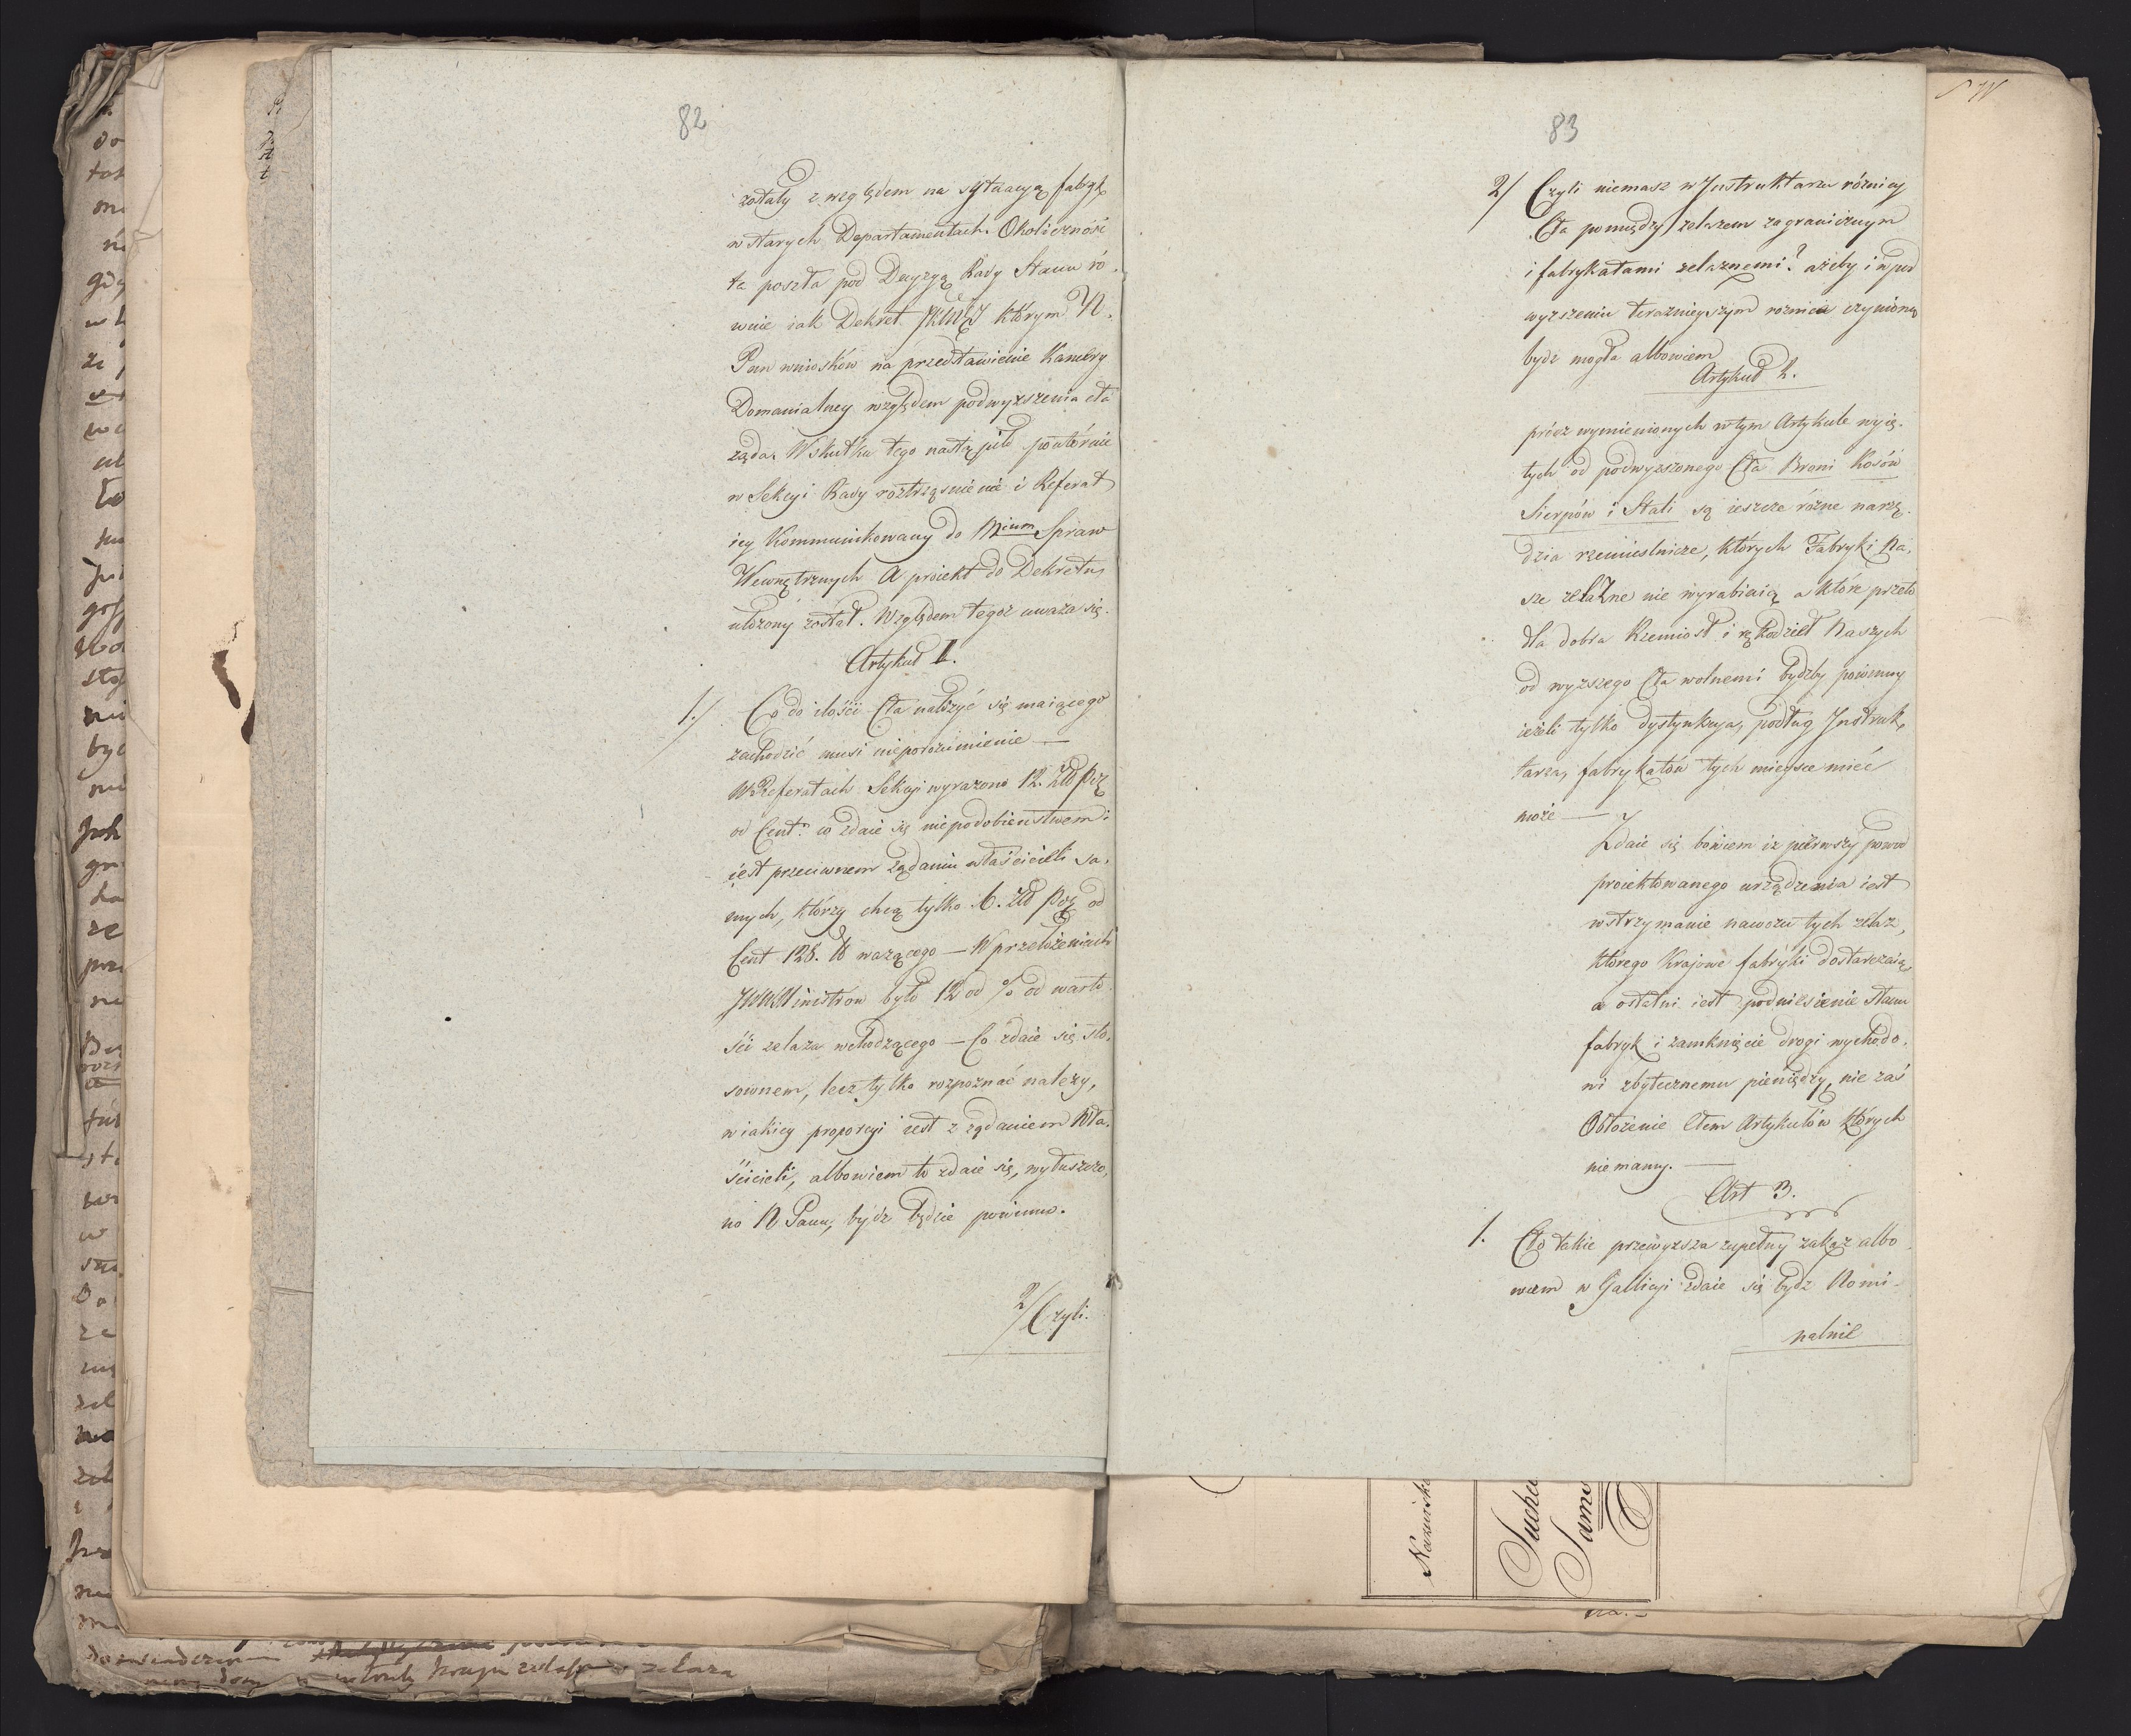 82
zostały z względem na sytuacyą fabryk
w starych Departamentach. Okoliczność
ta poszła pod Decyzyą Rady Stanu ró-
wnie iak Dekret którym N.
Pan wniosków na przedstawienie Kamery
Domanialney względem podwyższenia cła
żąda. W skutku tego nastąpiło powtórnie
w Sekcyi Rady roztrząśnienie i Referat
iey Kommunikowany do Mium Spraw
Wewnętrznych A proiekt do Dekretu
ułożony został. Względem tegoż uważa się.
Artykuł I.
1./ Co do ilości Cła należyć się maiącego
zachodzić musi nieporozumienie —
W Referatach Sekcyi wyrażono 12. Zł Pol
od Cent: co zdaie się niepodobieństwem i
iest przeciwnem żądaniu właścicieli sa-
mych, którzy chcą tylko 6. Zł Pol od
Cent 128. ℔ ważącego — W przełożeniach
JWW Ministrów było 12 od % od warto-
ści żelaza wchodzącego — Co zdaie się sto-
sownem, lecz tylko rozpoznać należy,
w iakiey proporcyi iest z żądaniem Wła-
ścicieli, albowiem to zdaie się, wyłuszczo-
no N Panu, bydź będzie powinno.
2/ Czyli.
83
2/ Czyli niemasz w Instruktarzu różnicy
Cła pomiędzy żelazem zagranicznym
i fabrykatami żelaznemi? ażeby i w pod
wyższeniu teraznieyszym roznica czyniona
bydź mogła albowiem
Artykuł 2.
prócz wymienionych w tym Artykule wyię-
tych od podwyższonego Cła Broni Kosów
Sierpów i Stali są ieszcze różne narzę-
dzia rzemieslnicze, których Fabryki Na-
sze żelazne nie wyrabiaią a które przeto
dla dobra Rzemiosł i rękodzieł Naszych
od wyższego Cła wolnemi bydźby powinny
ieżeli tylko dystynkcya, podług Instruk-
tarza, fabrykatów tych mieysce mieć
może —
Zdaie się bowiem iż pierwszy powód
proiektowanego urządzenia iest
wstrzymanie nawozu tych żelaz,
którego Krajowe fabryki dostarczaią,
a ostatni iest podniesienie stanu
fabryk i zamknięcie drogi wychodo-
wi zbytecznemu pieniędzy, nie zaś
Obłożenie Cłem Artykułów których
nie mamy. —
Art 3.
1. Cło takie przewyższa zupełny zakaz albo-
wiem w Gallicyi zdaie się bydź Nomi-
nalnie